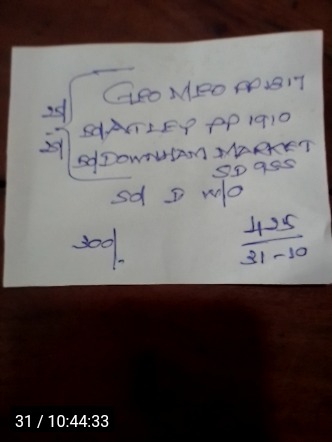 GEO MEO PP 1817
2/ Sd ATLEY PP 1910
2/ Sd DOWNHAM MARKET
SD 955
Sd D W/O
300/-
425
31-10
31 / 10:44:33